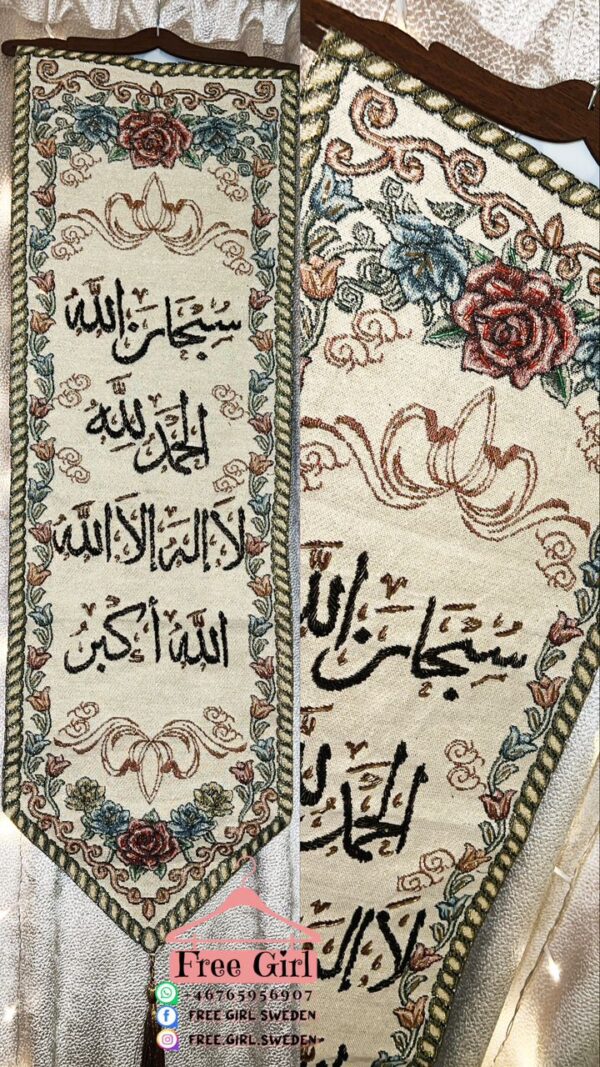 سبحان الله
الحمد لله
لا إله إلا الله
الله أكبر
سبحان الله
الحمد لله
لا إله
Free Girl
+46765956907
FREE.GIRL.SWEDEN
FREE.GIRL.SWEDEN